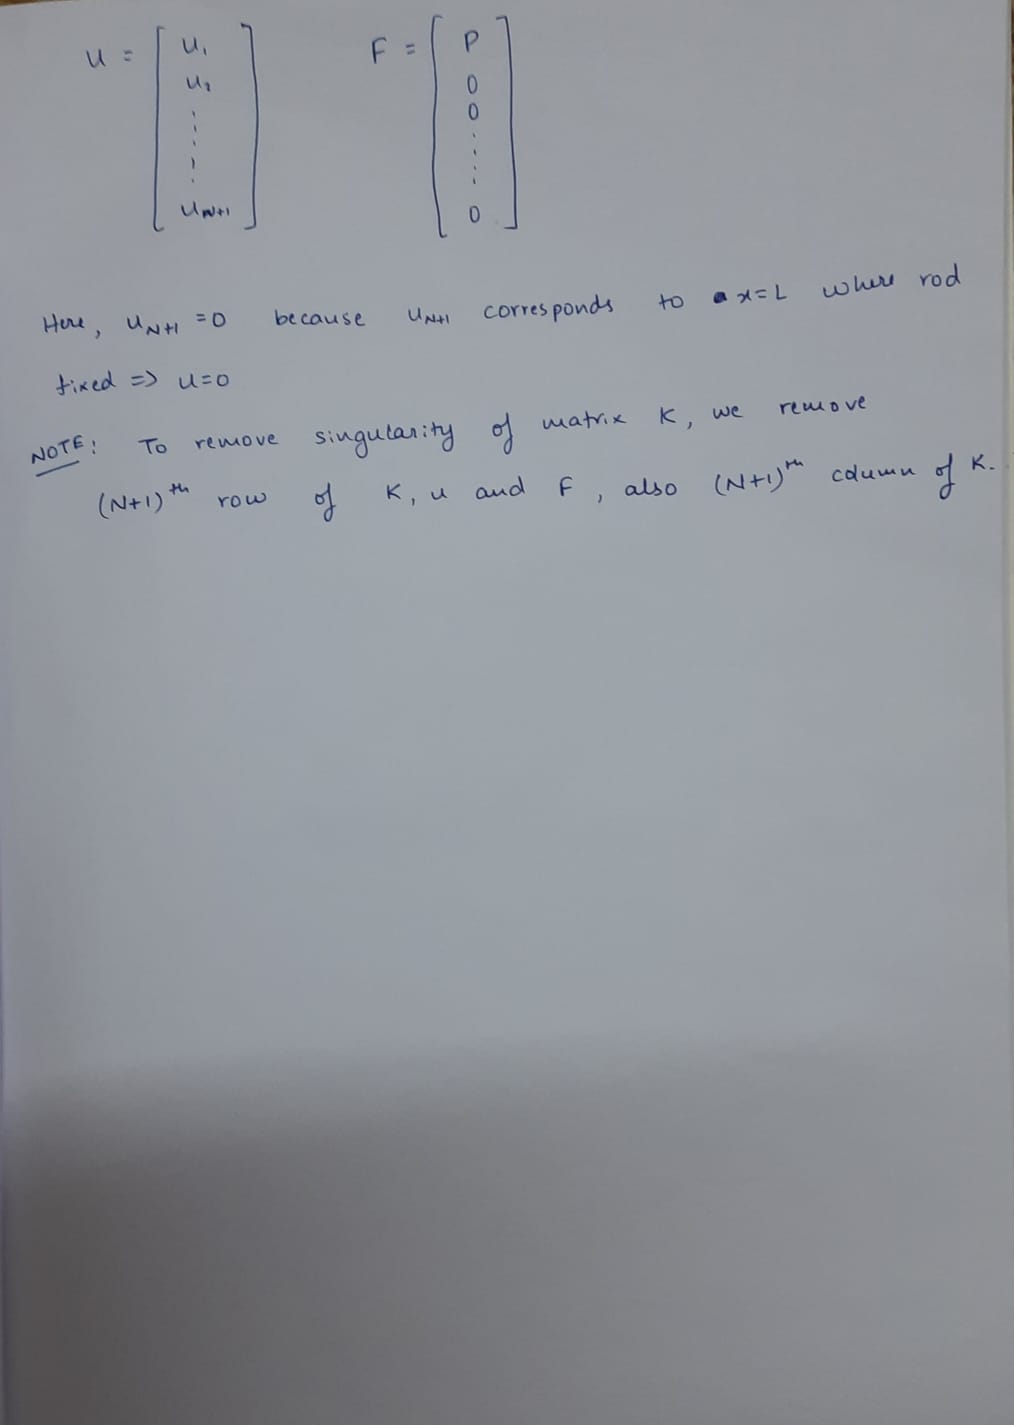 u = [ u₁ F = [ P
u₂ 0
0
⋮ ⋮
u_N+1 ] 0 ]
Here, u_N+1 = 0 because u_N+1 corresponds to x=L where rod
fixed => u=0
NOTE: To remove singularity of matrix K, we remove
(N+1)th row of K, u and F, also (N+1)th column of K.